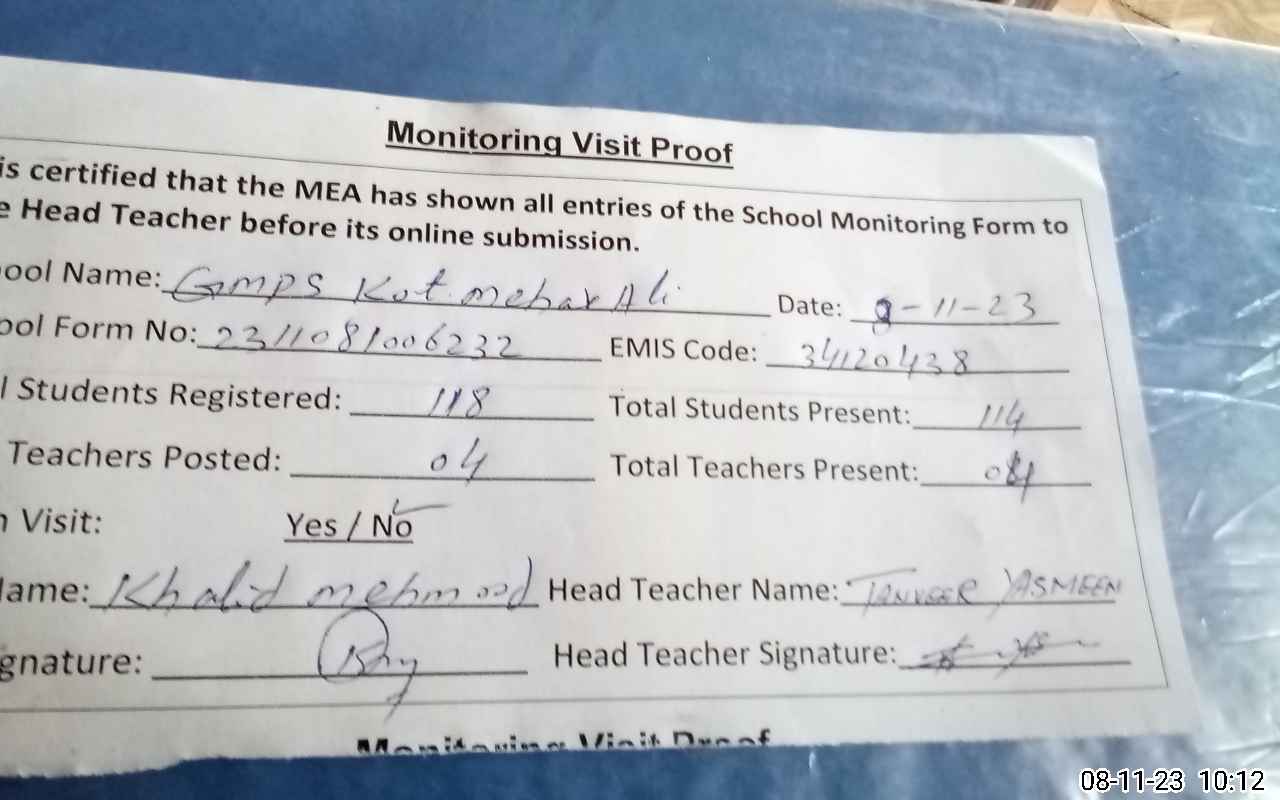 Monitoring Visit Proof
is certified that the MEA has shown all entries of the School Monitoring Form to
e Head Teacher before its online submission.
ool Name: GMPS Kot mehar Ali Date: 8-11-23
ool Form No: 2311081006232 EMIS Code: 34120438
l Students Registered: 118 Total Students Present: 114
Teachers Posted: 04 Total Teachers Present: 04
n Visit: Yes / No
ame: Khalid mehmood Head Teacher Name: TANVEER YASMEEN
gnature: Head Teacher Signature:
Monitoring Visit Proof
08-11-23 10:12